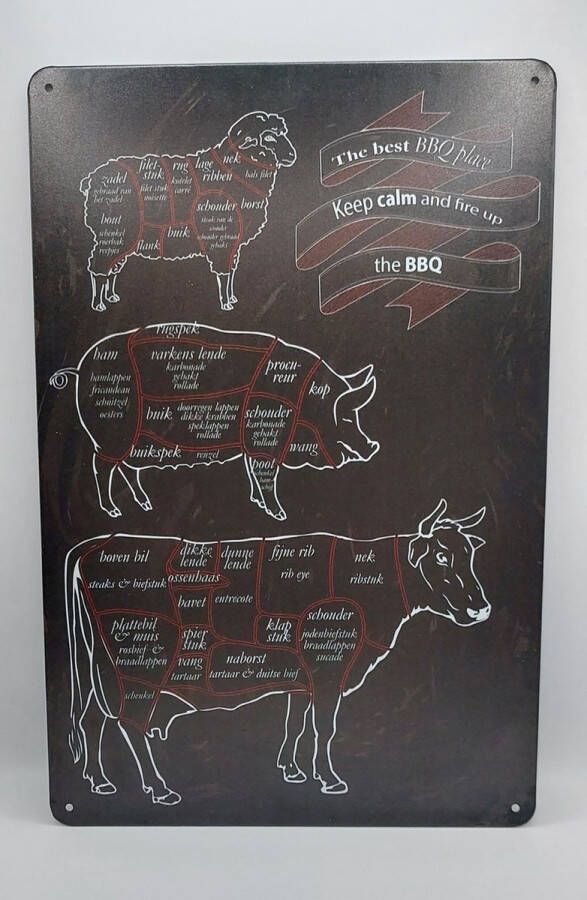 The best BBQ place
Keep calm and fire up
the BBQ
zadel
gebraad van
het zadel
filet
stuk
filet stuk
noisette
rug
kotelet
carré
lage
ribben
nek
hals filet
bout
schenkel
rouerbak
reepjes
flank
buik
schouder
steak van de
schouder
schouder gebraad
gehakt
borst
rugspek
ham
hamlappen
fricandeau
schnitzel
oesters
varkens lende
karbonade
gehakt
rollade
procu-
reur
kop
buik
doorregen lappen
dikke krabben
speklappen
rollade
schouder
karbonade
gehakt
rollade
wang
buikspek
reuzel
poot
schenkel
ham-
schijf
boven bil
steaks & biefstuk
dikke
lende
dunne
lende
fijne rib
rib eye
nek
ribstuk
ossenhaas
bavet
entrecote
plattebil
& muis
rosbief &
braadlappen
spier
stuk
klap
stuk
schouder
jodenbiefstuk
braadlappen
sucade
vang
tartaar
naborst
tartaar & duitse bief
schenkel